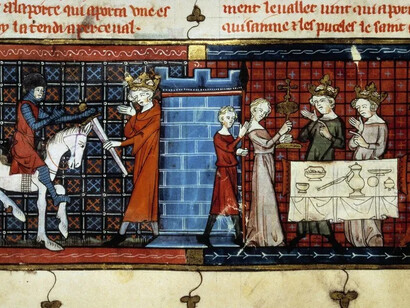 a la porte qui aporta une es
y la tendi a perceval.
ment le uallet uint qui a por
qui sainne & les puceles le saint